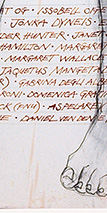 T OF · ISSOBELL OF
· JONKA DYNEIS ·
DER HUNTER · JANET
HAMILTON · MARGAR
· MARGARET WALLACE
JAQUETUS MANGETAL
R) · GABRINA DEGLI ALBE
RONI · DOMENICA GRAT
CK (PNU) · ASPELARE
E · DANIEL VON DEM